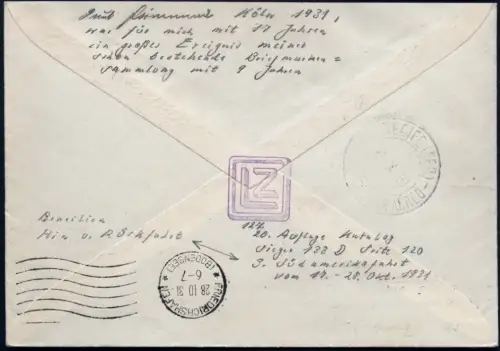 Köln 1931,
was für mich mit 17 Jahren
ein großes Ereignis meiner
schon bestehende Briefmarken=
Sammlung mit 9 Jahren
LZ
Brasilien
Hin u. Rückfahrt
127
20. Auflage Katalog
Sieger 138 D Seite 120
3. Südamerikafahrt
vom 18.-28. Okt. 1931
FRIEDRICHSHAFEN
(BODENSEE)
28.10.31
6-7